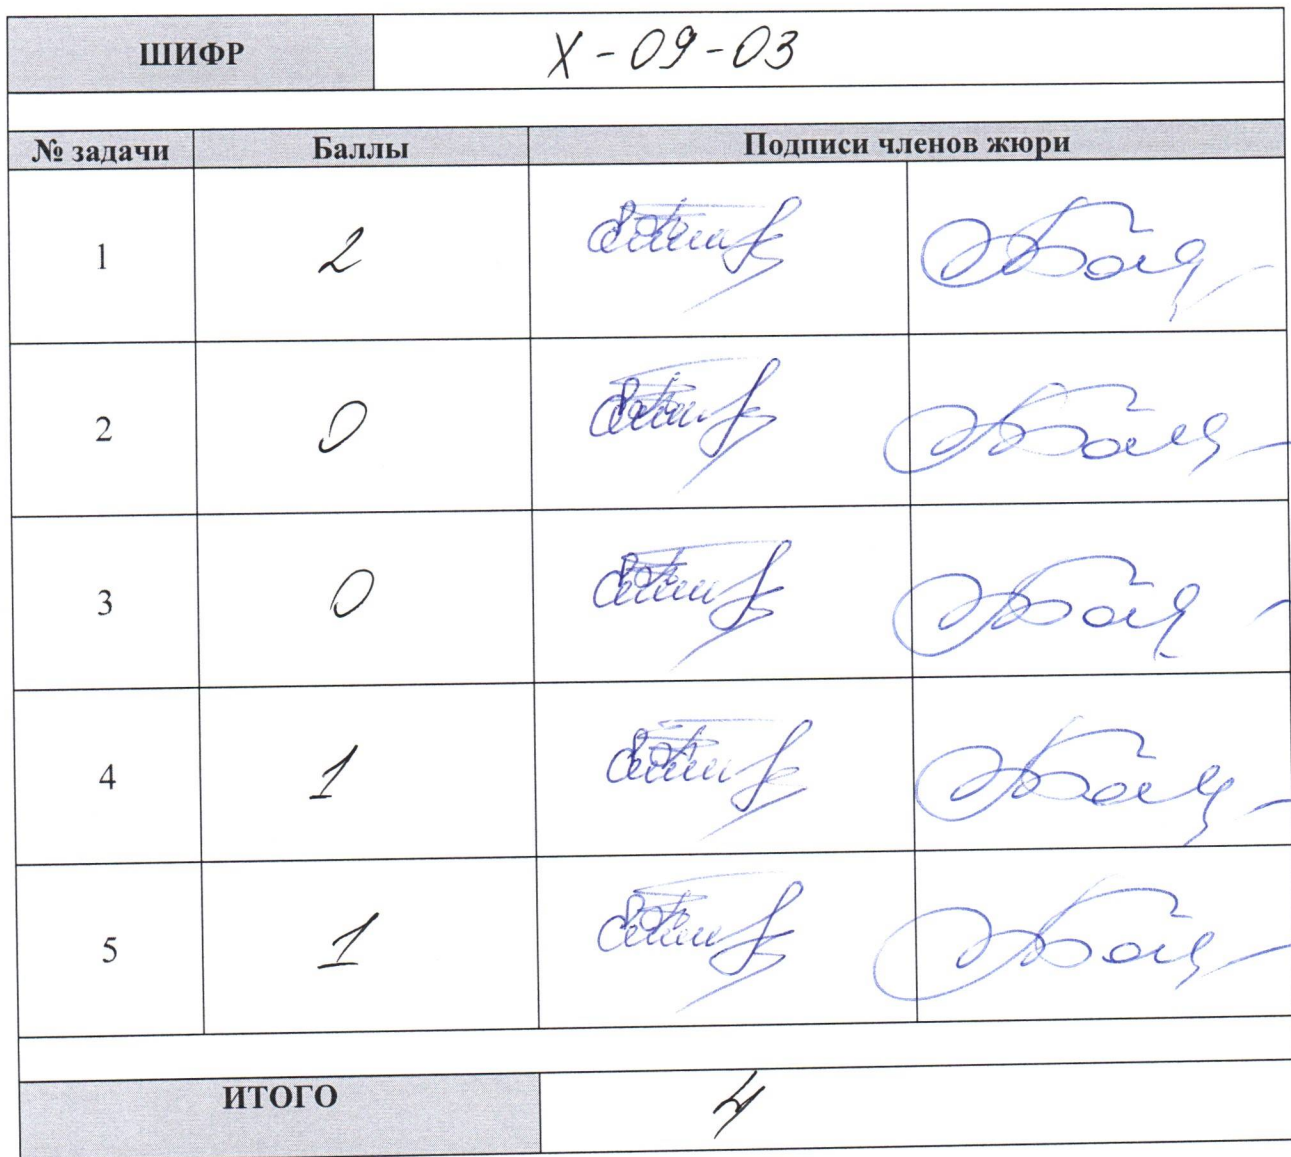 ШИФР X-09-03
№ задачи Баллы Подписи членов жюри
1 2
2 0
3 0
4 1
5 1
ИТОГО 4